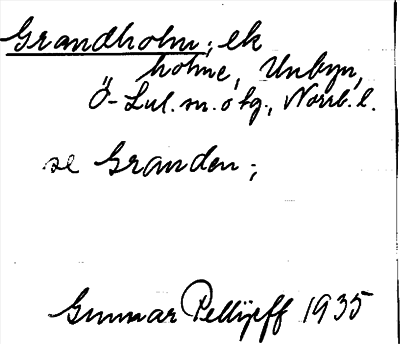 Grandholm, ek
holme, Unbyn,
Ö-Lul. sn. o tg., Norrb. l.
se Granden;
Gunnar Pellijeff 1935